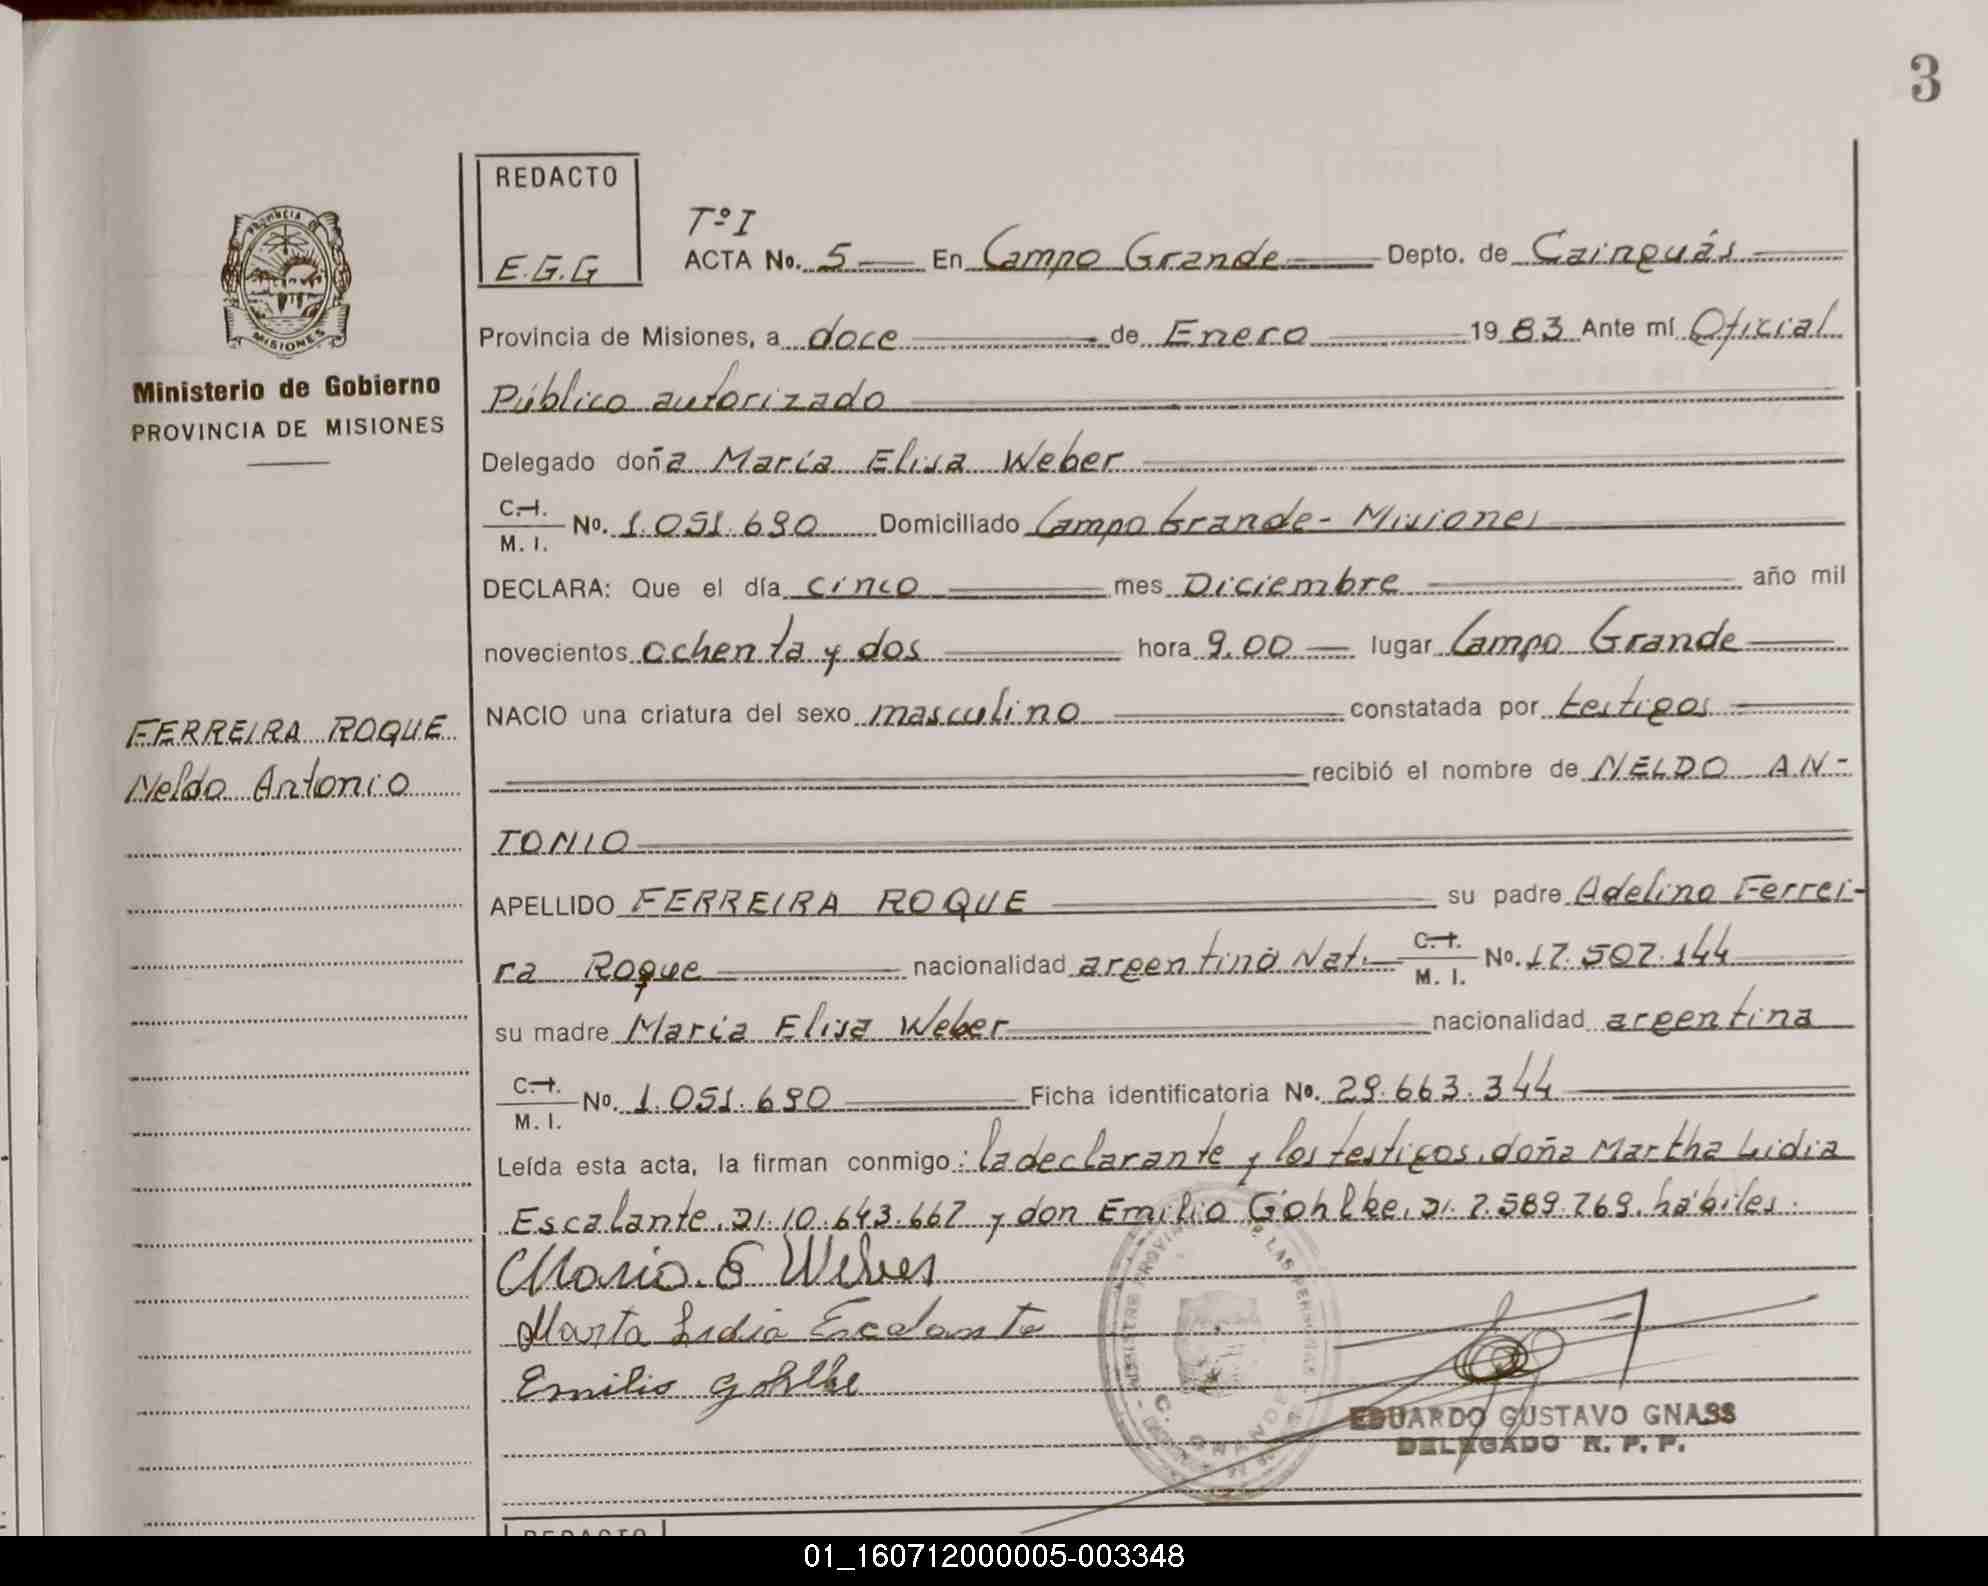 3
REDACTO
E.G.G
TºI
ACTA No. 5 En Campo Grande Depto. de Cainguás
Provincia de Misiones, a doce de Enero 1983 Ante mí Oficial
Público autorizado
Delegado doña María Elisa Weber
C.I. M. I. No. 1.051.690 Domiciliado Campo Grande - Misiones
DECLARA: Que el día cinco mes Diciembre año mil
novecientos ochenta y dos hora 9.00 lugar Campo Grande
NACIO una criatura del sexo masculino constatada por testigos
recibió el nombre de NELDO AN-
TONIO
APELLIDO FERREIRA ROQUE su padre Adelino Ferrei-
ra Roque nacionalidad argentino Nat. C.I. M. I. No. 17.507.144
su madre María Elisa Weber nacionalidad argentina
C.I. M. I. No. 1.051.690 Ficha identificatoria No. 29.663.344
Leída esta acta, la firman conmigo: la declarante y los testigos, doña Martha Lidia
Escalante, 10.643.667 y don Emilio Göhlke, 7.589.769, hábiles.
Maria E Weber
Marta Lidia Escalante
Emilio Gohlke
EDUARDO GUSTAVO GNASS
DELEGADO R. P. P.
PROVINCIA DE
MISIONES
Ministerio de Gobierno
PROVINCIA DE MISIONES
FERREIRA ROQUE
Neldo Antonio
LAS PERSONAS
C. GRANDE
REDACTO
01_160712000005-003348